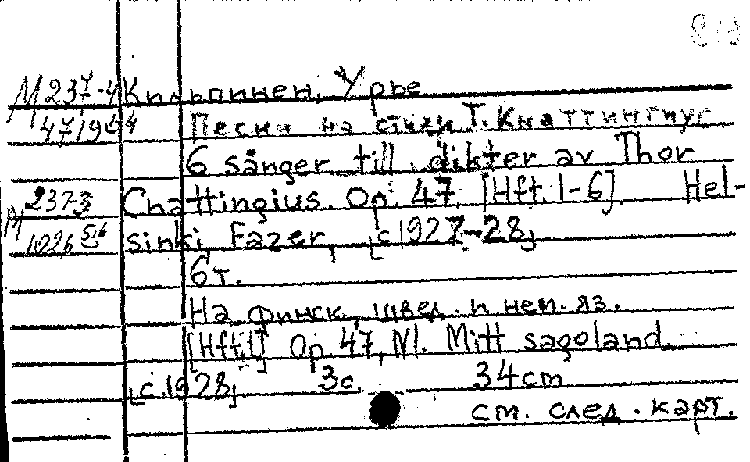 М 237-4 Кильпинен, Урье
Песни на стихи Т. Кнаттингиус
6 sånger till dikter av Thor
М 237-3 Cnattingius. Op. 47. [Hft. 1-6]. Hel-
sinki, Fazer, [c 1927-28]
6 т.
На финск., швед. и нем. яз.
[Hft. 1] Op. 47, N1. Mitt sagoland.
[c. 1928] 3 с. 34 cm
см. след. карт.